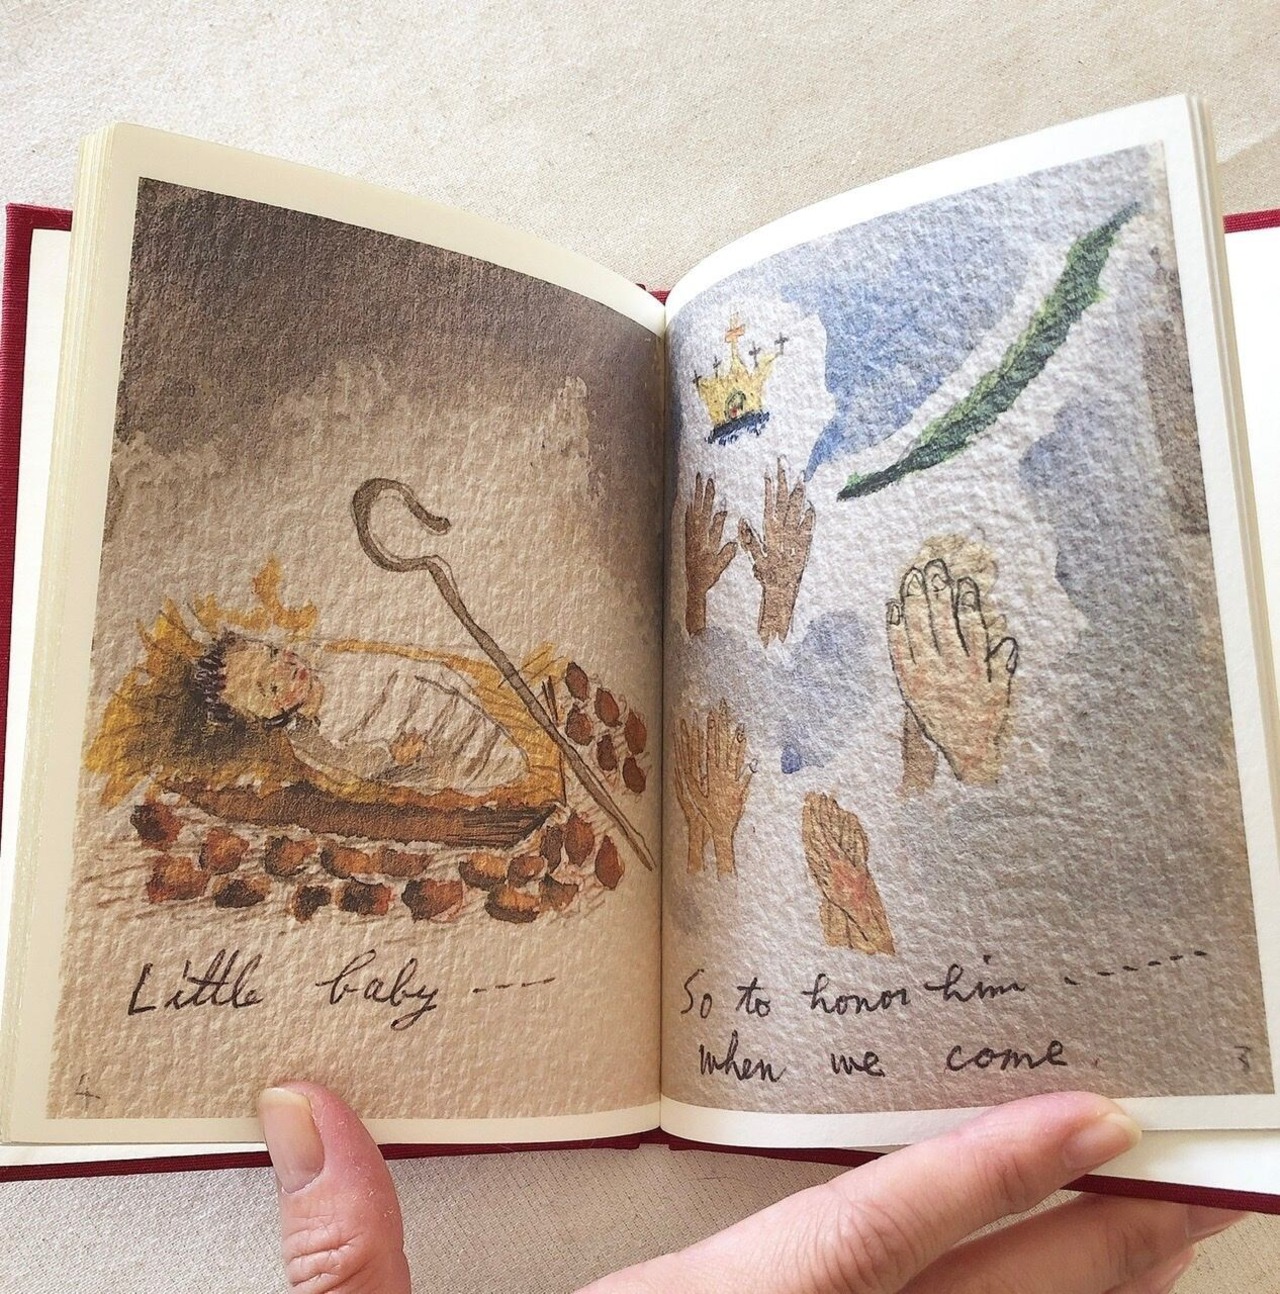 Little baby ----
4
So to honor him ------
when we come.
3